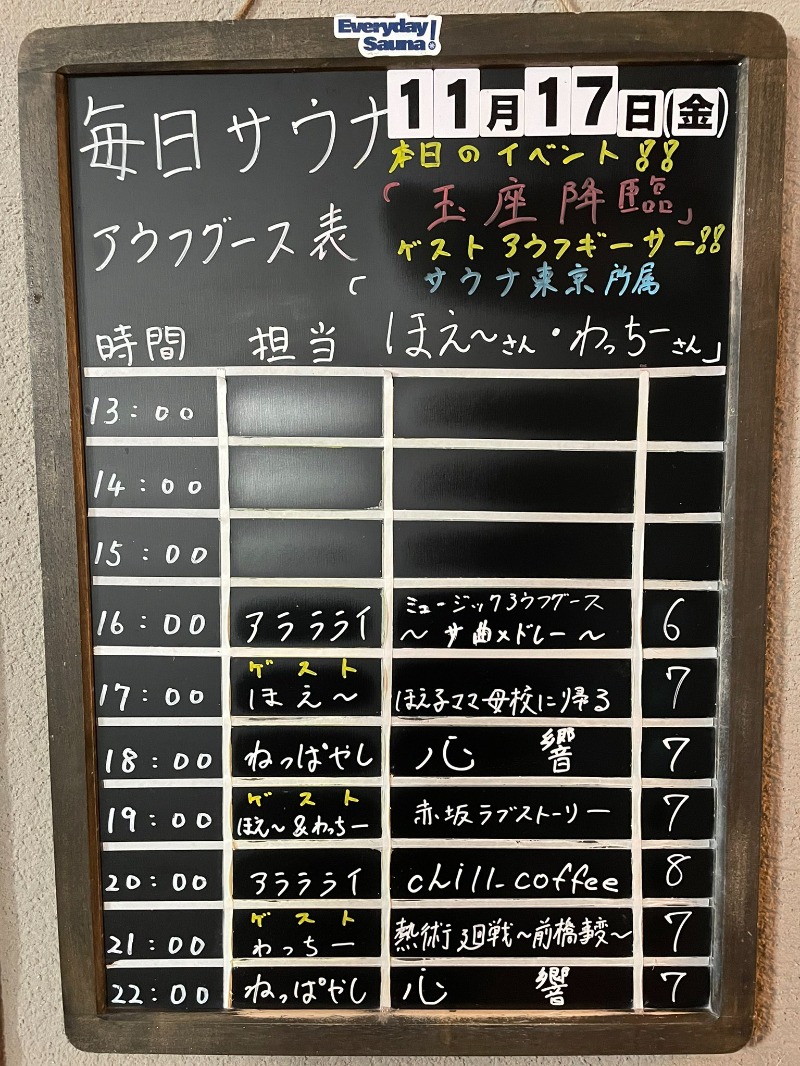 Everyday
Sauna!
毎日サウナ
11月17日(金)
本日のイベント!!
「玉座降臨」
アウフグース表
ゲストアウフギーサー!!
サウナ東京所属
「ほえ〜さん・わっちーさん」
時間 担当
13:00
14:00
15:00
16:00 アララライ ミュージックアウフグース 〜サ曲メドレー〜 6
17:00 ゲスト ほえ〜 ほえ子ママ母校に帰る 7
18:00 ねっぱやし 心響 7
19:00 ゲスト ほえ〜&わっちー 赤坂ラブストーリー 7
20:00 アララライ chill-coffee 8
21:00 ゲスト わっちー 熱術廻戦〜前橋事変〜 7
22:00 ねっぱやし 心響 7